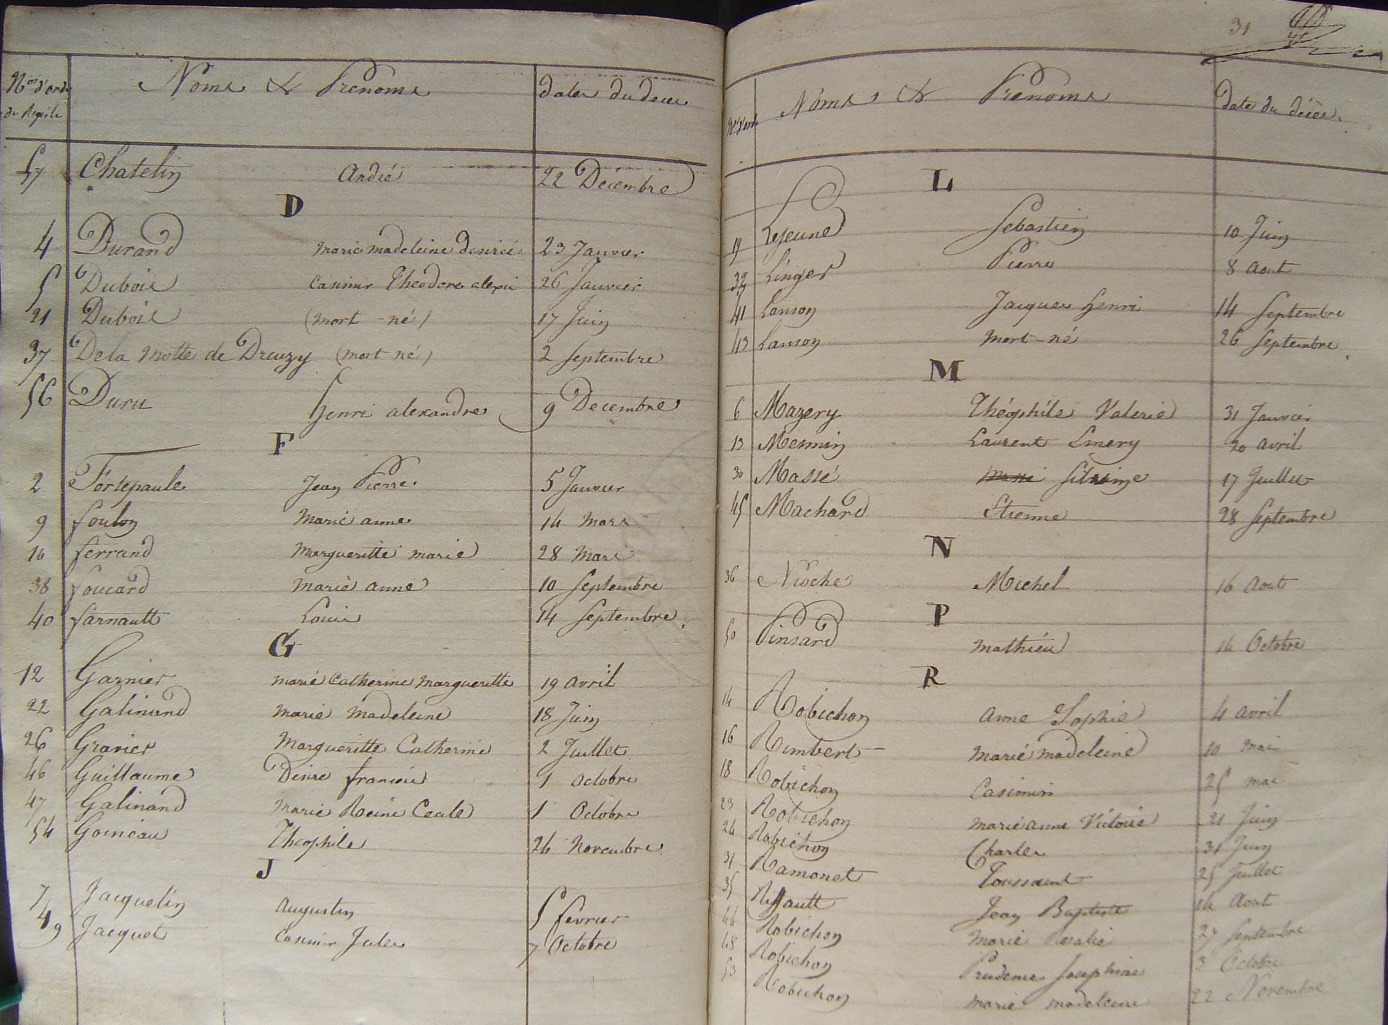 Nos d'ord du Registre Noms & Prénoms date du décè
57 Chatelin André 22 Décembre
D
4 Durand marie madeleine désirée 23 Janvier
5 Dubois Casimir Théodore alexis 26 Janvier
21 Dubois (mort-né) 17 Juin
37 De la Motte de Dreuzy (mort né) 2 Septembre
56 Duru henri alexandre 9 Décembre
F
2 Fortepaule Jean Pierre 5 Janvier
9 foulon Marie anne 14 Mars
10 ferrand Margueritte marie 28 Mars
38 foucard Marie anne 10 Septembre
40 farnault Louis 14 Septembre.
G
12 Garnier marie Catherine margueritte 19 avril
22 Galinand Marie Madeleine 18 Juin
26 Gravier Margueritte Catherine 2 Juillet
46 Guillaume Désiré françois 1 Octobre
47 Galinand Marie Reine Cecile 1 Octobre
54 Goineau Théophile 26 Novembre
J
7 Jacquelin Augustin 5 fevrier
49 Jacquet Casimir Jules 7 Octobre
31
Noms & Prénoms date du décès.
L
19 Lejeune Sebastien 10 Juin
39 Linger Pierre 8 aout
41 Lanson Jacques henri 14 Septembre
43 Lanson Mort-né 26 Septembre
M
6 Mazery Théophile Valerie 31 Janvier
13 Mesmin Laurent Emery 20 avril
30 Massé 17 Juillet
45 Machard Etienne 28 Septembre
N
36 Nioche Michel 16 Aout
P
50 Pinsard Mathieu 14 Octobre
R
11 Robichon Anne Sophie 4 avril
16 Rimbert Marie madeleine 10 mai
18 Robichon Casimir 25 mai
23 Robichon Marie anne Victoire 21 Juin
24 Robichon Charles 31 Juin
31 Ramonet Toussaint 25 Juillet
35 Riffault Jean Baptiste 14 Aout
44 Robichon Marie Rosalie 27 Septembre
48 Robichon Prudence Josephine 3 Octobre
53 Robichon Marie madeleine 22 Novembre